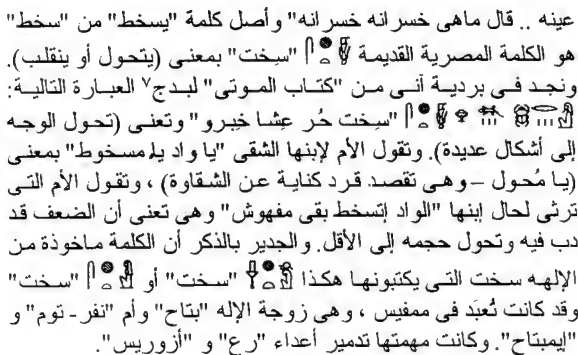 عينه .. قال ماهى خسرانه خسرانه" وأصل كلمة "يسخط" من "سخط"
هو الكلمة المصرية القديمة "سِخت" بمعنى (يتحول أو ينقلب).
ونجد فى بردية آنى من "كتاب الموتى" لبدج٧ العبارة التالية:
"سِخت حُر عِشا خِبرو" وتعنى (تحول الوجه
إلى أشكال عديدة). وتقول الأم لإبنها الشقى "يا واد يا مسخوط" بمعنى
(يا مُحول – وهى تقصد قرد كناية عن الشقاوة) ، وتقول الأم التى
ترثى لحال إبنها "الواد إتسخط بقى مفهوش" وهى تعنى أن الضعف قد
دب فيه وتحول حجمه إلى الأقل. والجدير بالذكر أن الكلمة ماخوذة من
الإلهه سخت التى يكتبونها هكذا "سخت" أو "سخت"
وقد كانت تُعبَد فى ممفيس ، وهى زوجة الإله "بتاح" وأم "نفر- توم" و
"إيمبتاح". وكانت مهمتها تدمير أعداء "رع" و "أزوريس".